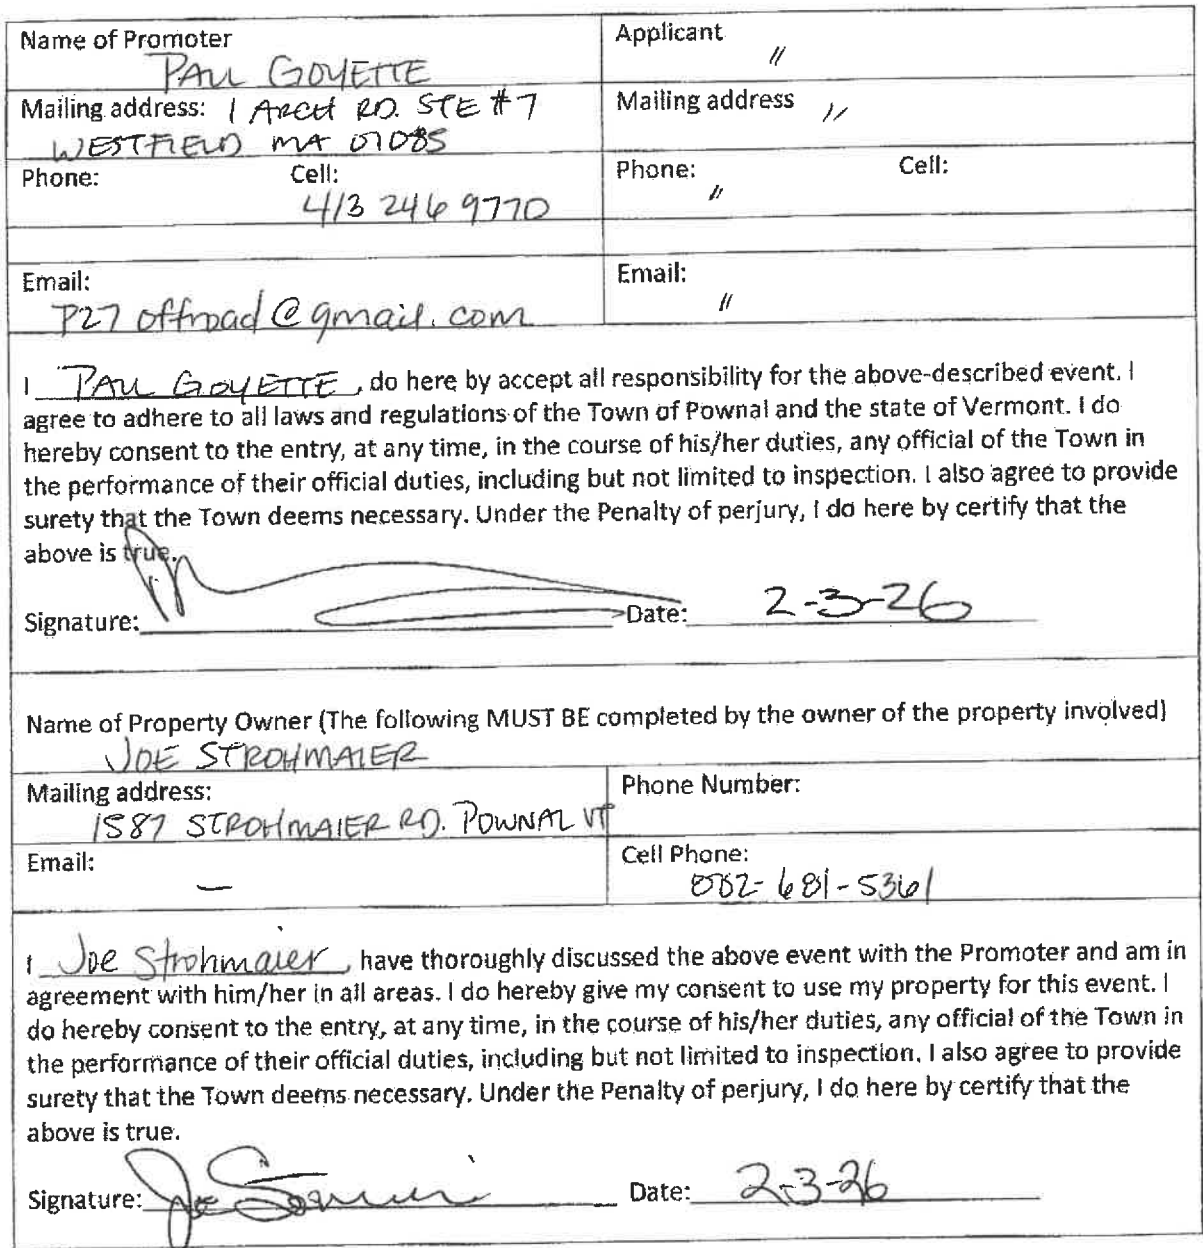 Name of Promoter
PAUL GOYETTE
Applicant
"
Mailing address: 1 ARCH RD. STE #7
WESTFIELD MA 01085
Mailing address "
Phone: Cell:
413 246 9770
Phone: Cell:
"
Email:
P27 offroad@gmail.com
Email:
"
I PAUL GOYETTE, do here by accept all responsibility for the above-described event. I
agree to adhere to all laws and regulations of the Town of Pownal and the state of Vermont. I do
hereby consent to the entry, at any time, in the course of his/her duties, any official of the Town in
the performance of their official duties, including but not limited to inspection. I also agree to provide
surety that the Town deems necessary. Under the Penalty of perjury, I do here by certify that the
above is true.
Signature: Date: 2-3-26
Name of Property Owner (The following MUST BE completed by the owner of the property involved)
JOE STROHMAIER
Mailing address:
1587 STROHMAIER RD. POWNAL VT
Phone Number:
Email:
—
Cell Phone:
802-681-5361
I Joe Strohmaier, have thoroughly discussed the above event with the Promoter and am in
agreement with him/her in all areas. I do hereby give my consent to use my property for this event. I
do hereby consent to the entry, at any time, in the course of his/her duties, any official of the Town in
the performance of their official duties, including but not limited to inspection. I also agree to provide
surety that the Town deems necessary. Under the Penalty of perjury, I do here by certify that the
above is true.
Signature: Joe Date: 2-3-26